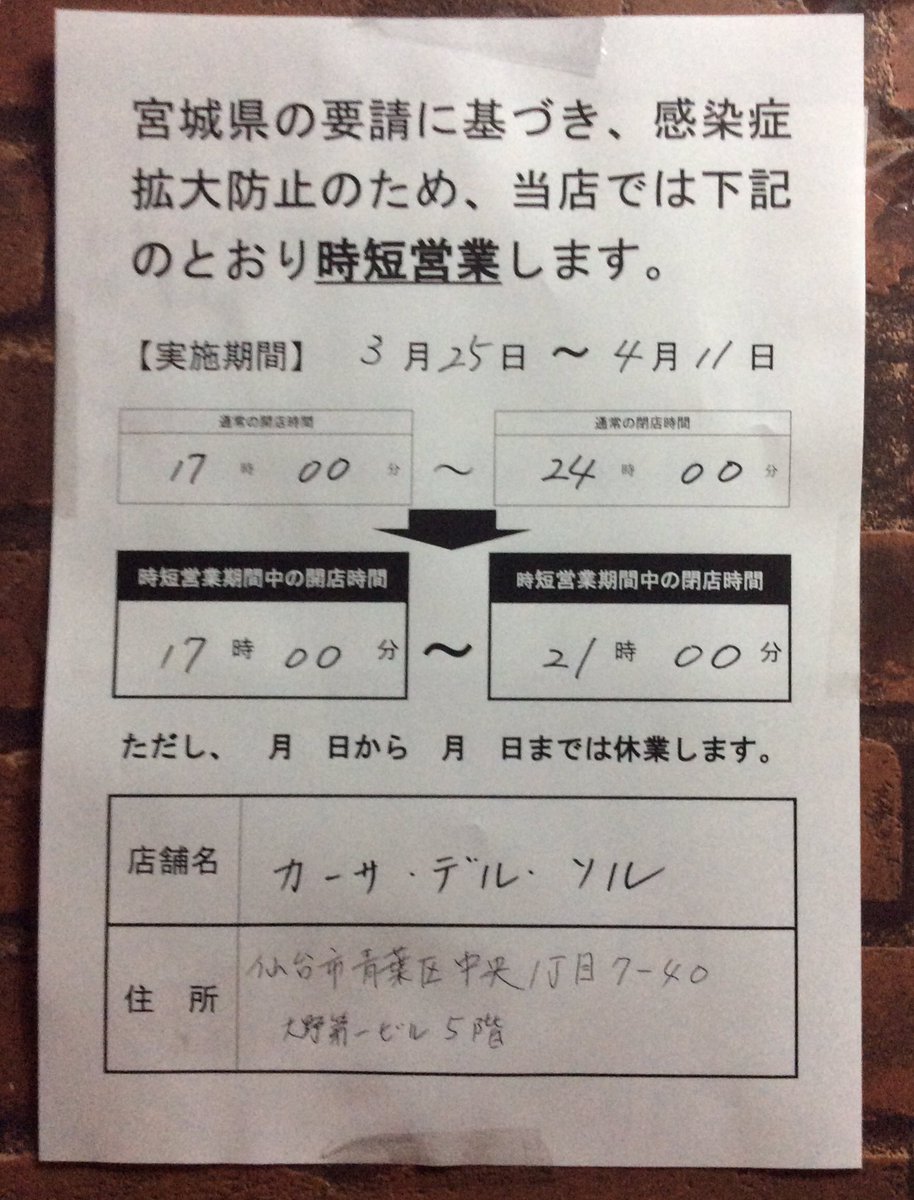 宮城県の要請に基づき、感染症
拡大防止のため、当店では下記
のとおり時短営業します。
【実施期間】 3月25日 〜 4月11日
通常の開店時間 通常の閉店時間
17時00分 〜 24時00分
時短営業期間中の開店時間 時短営業期間中の閉店時間
17時00分 〜 21時00分
ただし、 月 日から 月 日までは休業します。
店舗名 カーサ・デル・ソル
住 所 仙台市青葉区中央1丁目7-40
大野第一ビル 5階